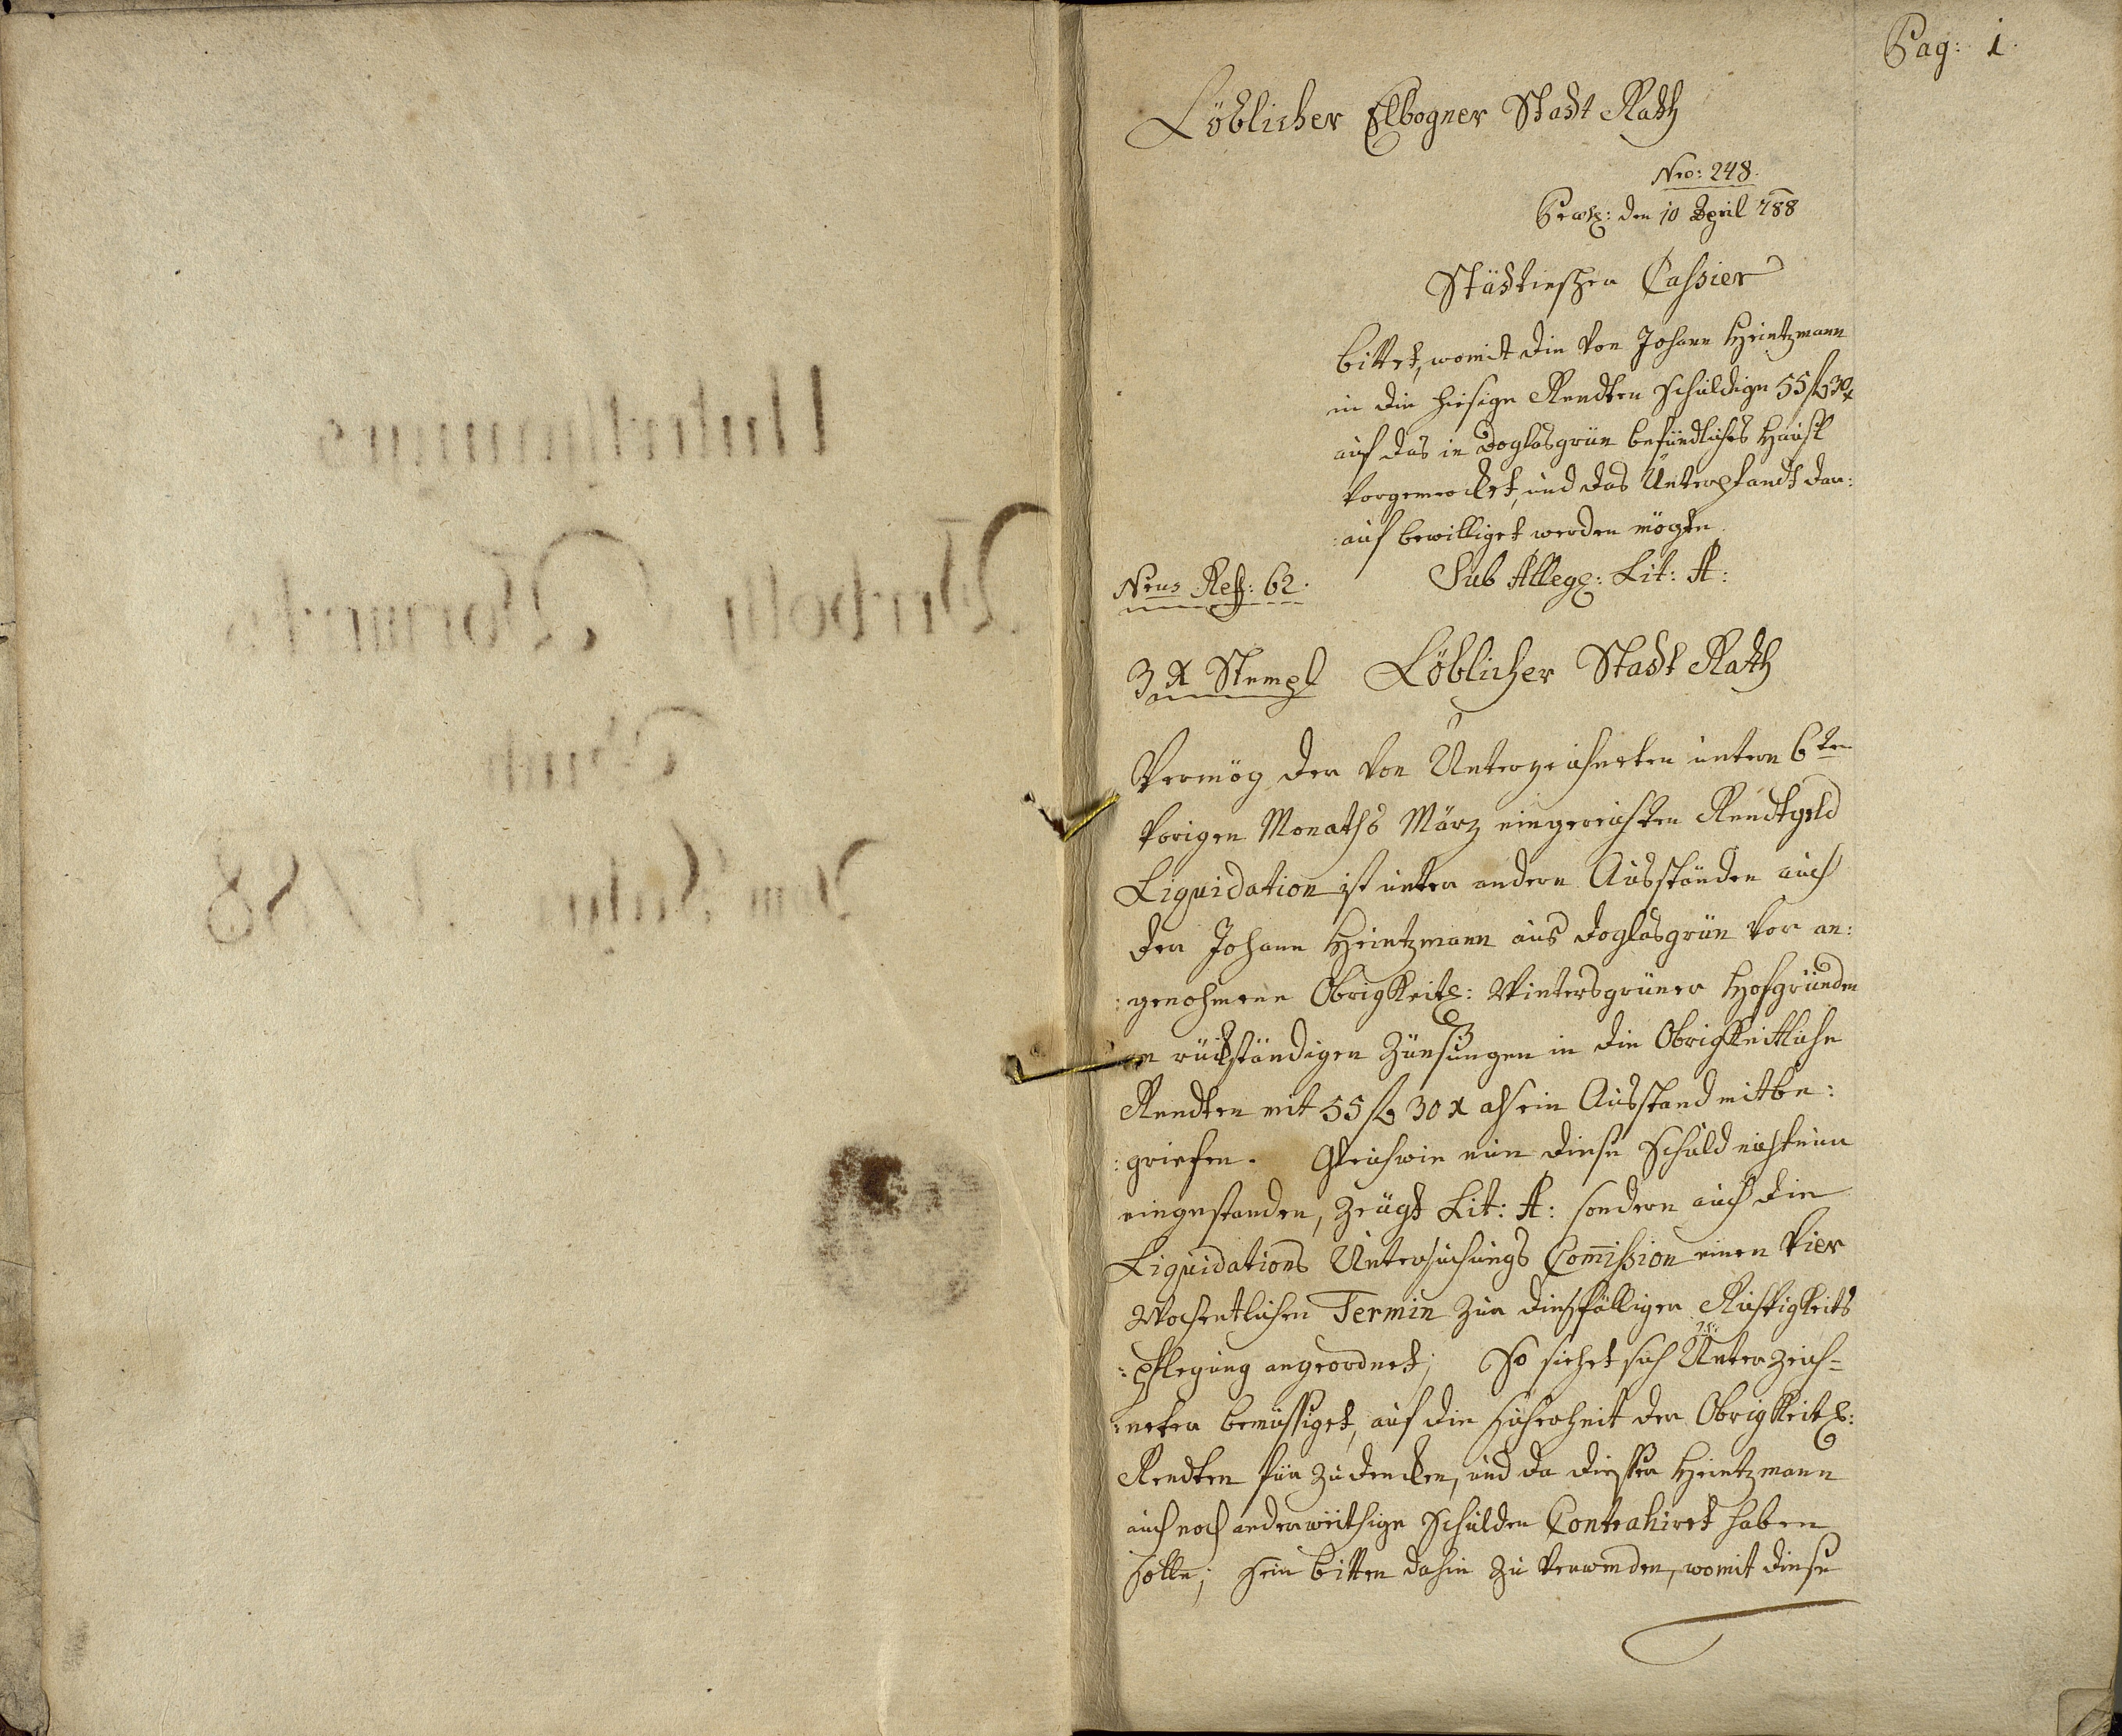 Pag: 1.
Löblicher Elbogner Stadt Rath
Nro: 248.
den 10 April 788
Städtischer Cassier
bittet, womit die von Johann Heintzmann
in die hiesige Rendten schuldige 55 fl 30 x
auf das in Doglasgrün befündliches Häusl
vorgemercket, und das Unterpfandt dar:
:auf bewilliget werden mögte.
Sub Lit: A:
Nrus 62.
3 x Stempl
Löblicher Stadt Rath
Vermög der von Unterzeichneten untern 6ten
vorigen Monaths März eingereichten Rendtgeld
Liquidation ist unter andern Ausständen auch
der Johann Heintzmann aus Doglasgrün vor an:
:genohmene Obrigkeitl: Wintersgrüner Hofgründen
an rückständigen Zünsungen in die Obrigkeitliche
Rendten mit 55 fl 30 x als ein Ausstand mitbe:
:griefen. Gleichwie nun diese Schuld nicht nur
eingestanden, zeugt Lit: A: sondern auch die
Liquidations Untersuchungs Com̄ission einen vier
Wochentlichen Termin zur diesfälligen Richtigkeits
:pflegung angeordnet; So siehet sich Unterzeich=
:neter bemüssiget, auf die Sicherheit der Obrigkeitl:
Rendten für zu dencken, und da diesser Heintzmann
auch noch anderweithige Schulden Contrahiret haben
solle; sein bitten dahin zu verwenden, womit diese
Unterthaniges
Verboth Vormerks
Buch
Vom Jahre 1788